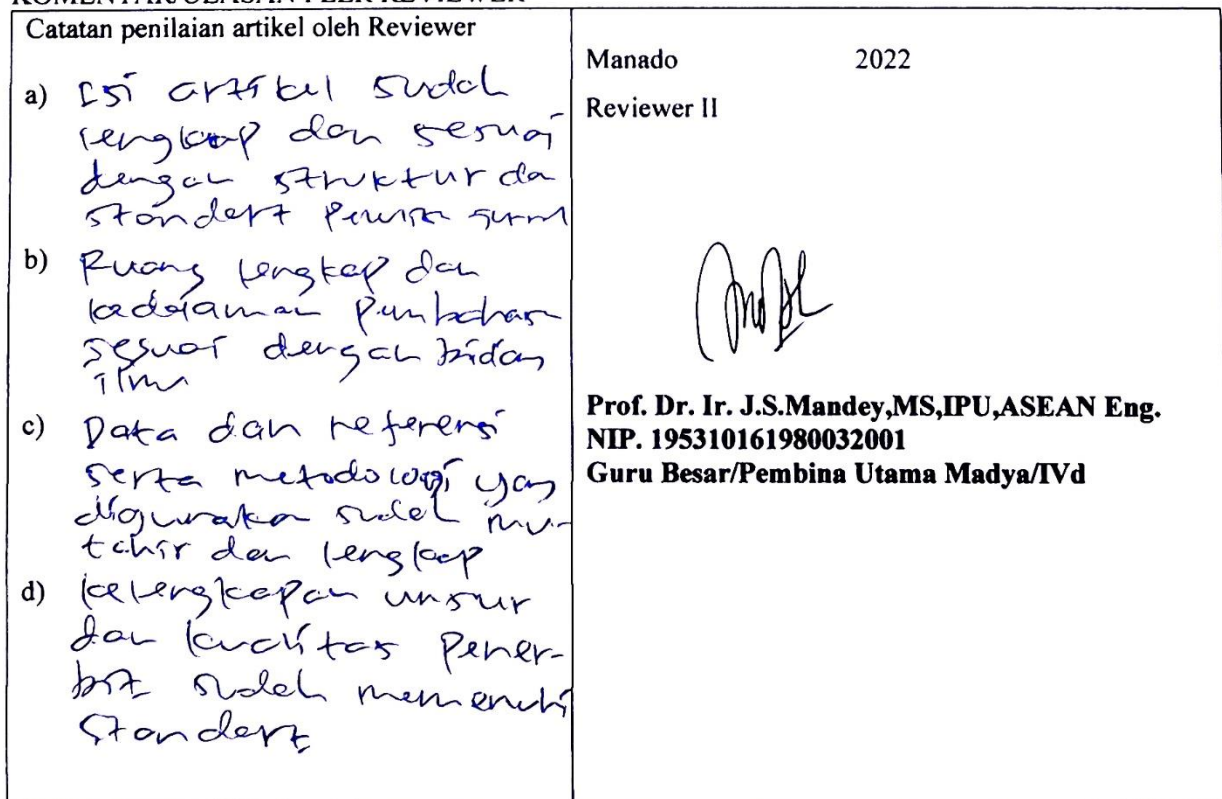 KOMENTAR/ULASAN PEER REVIEWER
Catatan penilaian artikel oleh Reviewer
a) Isi artikel sudah
lengkap dan sesuai
dengan struktur da
standert
b) Ruang lengkap dan
kedalaman
sesuai dengan bidan
ilmu
c) Data dan referensi
serta metodologi yan
digunakan sudah mu-
tahir dan lengkap
d) kelengkapan unsur
dan kualitas Pener-
bit sudah memenuhi
standert
Manado 2022
Reviewer II
Prof. Dr. Ir. J.S.Mandey,MS,IPU,ASEAN Eng.
NIP. 195310161980032001
Guru Besar/Pembina Utama Madya/IVd